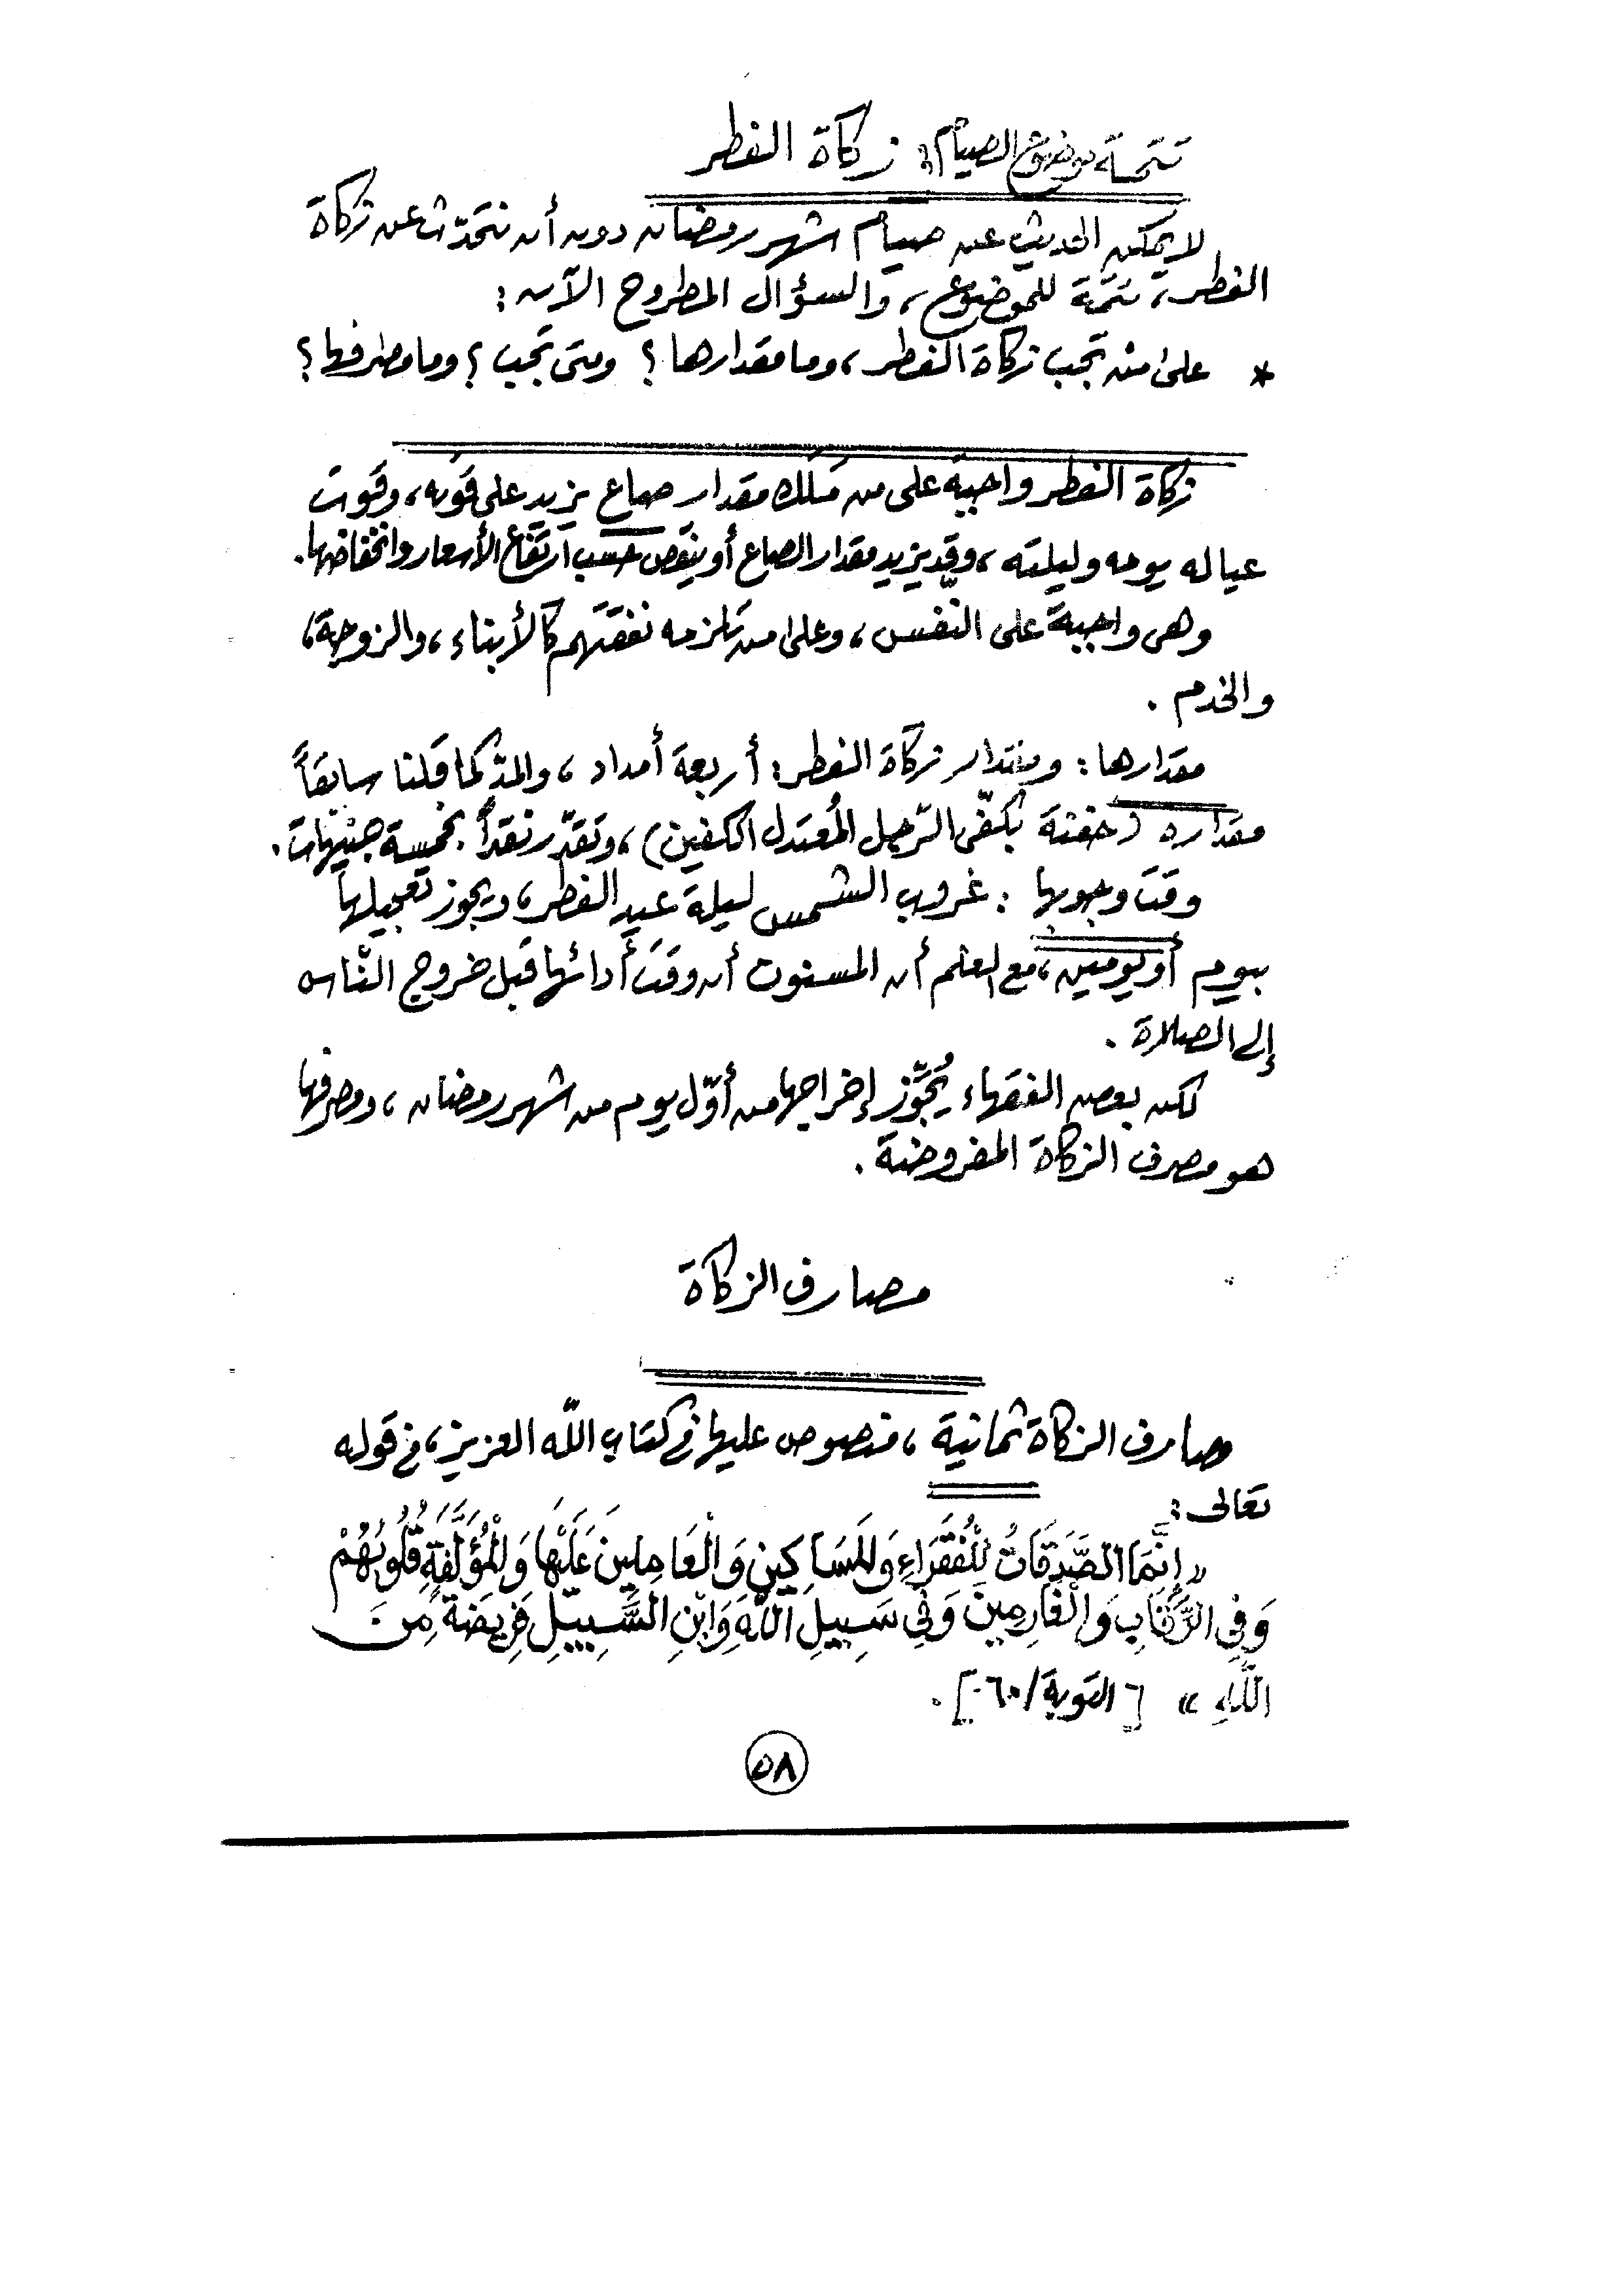 تتمة موضوع الصيام: زكاة الفطر
لا يمكن الحديث عن صيام شهر رمضان دون أن نتحدّث عن زكاة
الفطر، تتمّة للموضوع، والسؤال المطروح الآن:
* على من تجب زكاة الفطر، وما مقدارها؟ ومتى تجب؟ وما مصرفها؟
زكاة الفطر واجبة على من مَلَك مقدار صاع يزيد على قوته، وقوت
عياله يومه وليلته، وقد يزيد مقدار الصاع أو ينقص حسب ارتفاع الأسعار وانخفاضها.
وهي واجبة على النّفس، وعلى من تلزمه نفقتهم كالأبناء، والزوجة،
والخدم.
مقدارها: ومقدار زكاة الفطر: أربعة أمداد، والمدّ كما قلنا سابقاً
مقداره (حفنة بكفّي الرّجل المُعتدل الكفين)، وتقدّر نقداً بخمسة جنيهات.
وقت وجوبها: غروب الشمس ليلة عيد الفطر، ويجوز تعجيلها
بيوم أو يومين، مع العلم أن المسنون أن وقتَ أدائها قبل خروج النّاس
إلى الصلاة.
لكن بعض الفقهاء يُجَوِّز إخراجها من أوّل يوم من شهر رمضان، ومصرفها
هو مصرف الزكاة المفروضة.
مصارف الزكاة
مصارف الزكاة ثمانية، منصوص عليها في كتاب اللّه العزيز، في قوله
تعالى:
« إِنَّمَا الصَّدَقَاتُ لِلْفُقَرَاءِ وَالمَسَاكِينِ وَالْعَامِلِينَ عَلَيْهَا وَالْمُؤَلَّفَةِ قُلُوبُهُمْ
وَفِي الرِّقَابِ وَالْغَارِمِينَ وَفِي سَبِيلِ اللَّهِ وَابْنِ السَّبِيلِ فَرِيضَةً مِنَ
اللَّهِ » [التوبة/٦٠].
٥٨